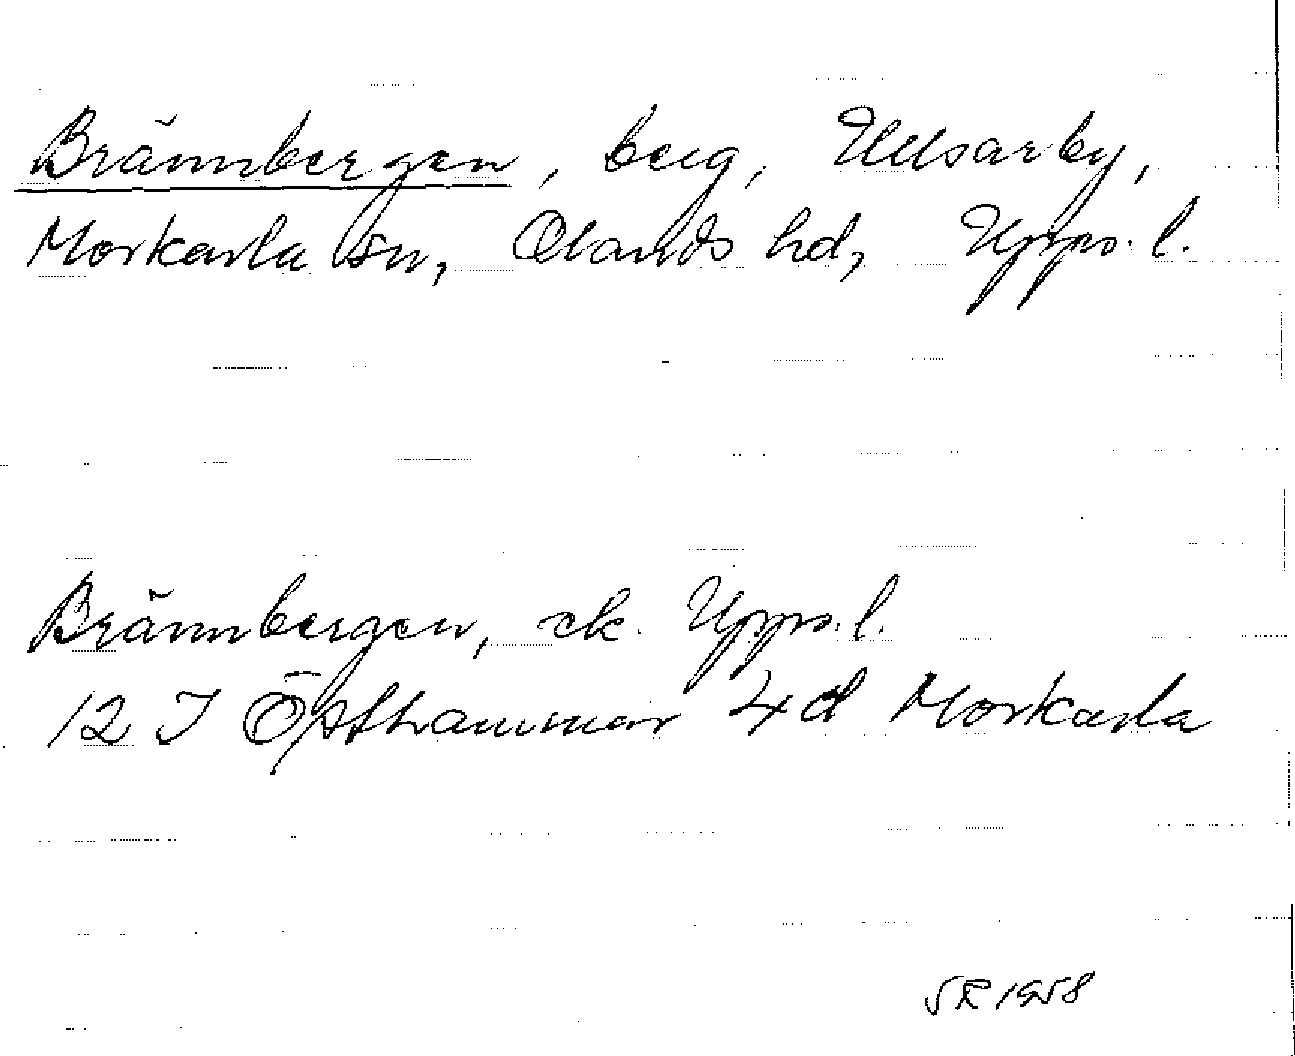 Brännbergen, berg, Ullsarby,
Morkarla sn, Olands hd, Upps. l.
Brännbergen, ek. Upps. l.
12 I Östhammar 4d Morkarla
1958